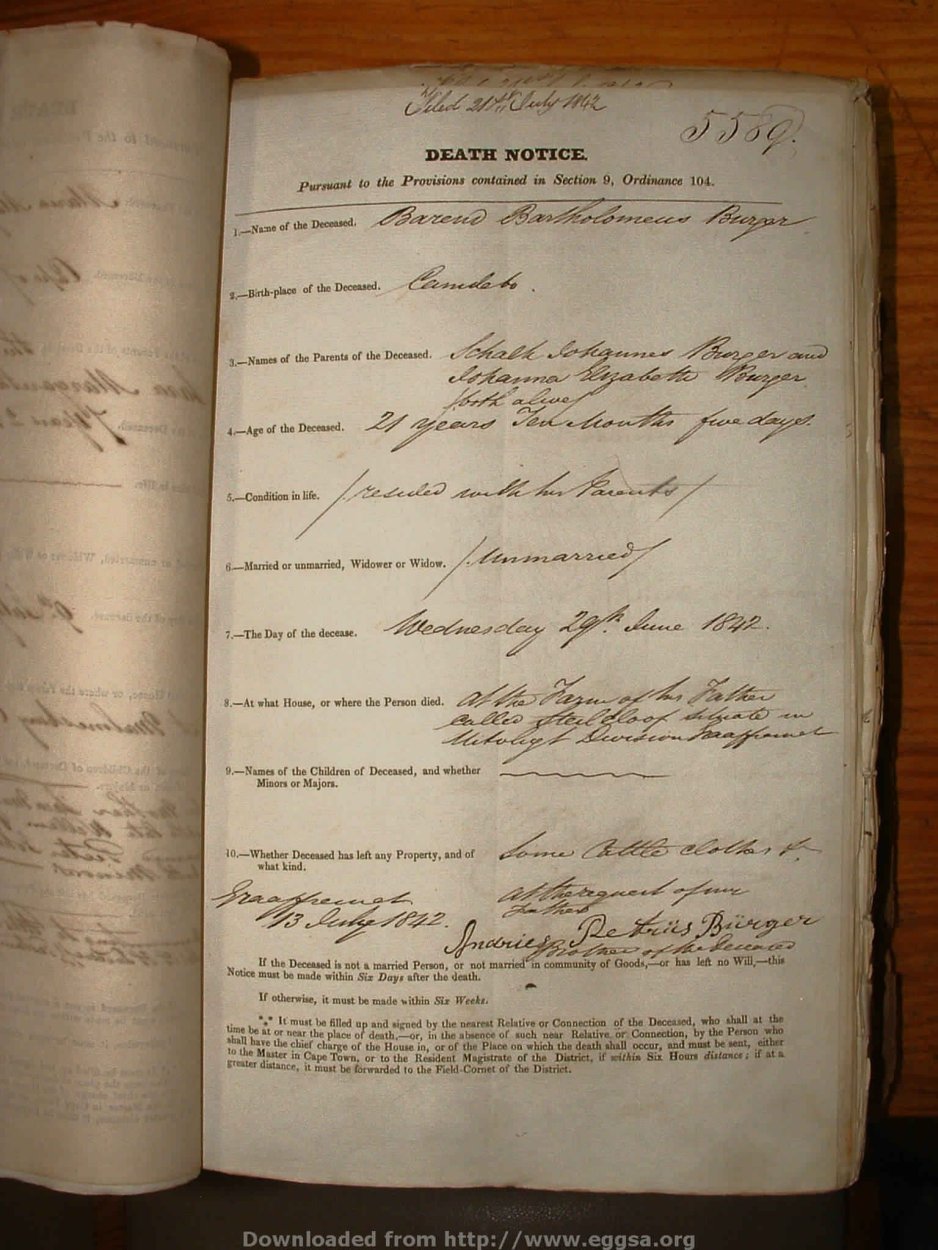 Filed 21st July 1842
5589.
DEATH NOTICE.
Pursuant to the Provisions contained in Section 9, Ordinance 104.
1.—Name of the Deceased. Barend Bartholomeus Burger
2.—Birth-place of the Deceased. Camdebo.
3.—Names of the Parents of the Deceased. Schalk Johannes Burger and
Johanna Elizabeth Burger
/both alive/
4.—Age of the Deceased. 21 years Ten Months five days.
5.—Condition in life. /resided with his Parents/
6.—Married or unmarried, Widower or Widow. /Unmarried/
7.—The Day of the decease. Wednesday 29th. June 1842.
8.—At what House, or where the Person died. At the Farm of his Father
called situate in
Uitvlugt Division Graaffreinet
9.—Names of the Children of Deceased, and whether
Minors or Majors.
10.—Whether Deceased has left any Property, and of
what kind. Some Cattle clothes &.
Graaffreinet
13 July 1842.
At the request of my
Father
Andries Petrus Bürger
Brother of the deceased
If the Deceased is not a married Person, or not married in community of Goods,—or has left no Will,—this
Notice must be made within Six Days after the death.
If otherwise, it must be made within Six Weeks.
*** It must be filled up and signed by the nearest Relative or Connection of the Deceased, who shall at the
time be at or near the place of death,—or, in the absence of such near Relative or Connection, by the Person who
shall have the chief charge of the House in, or of the Place on which the death shall occur, and must be sent, either
to the Master in Cape Town, or to the Resident Magistrate of the District, if within Six Hours distance; if at a
greater distance, it must be forwarded to the Field-Cornet of the District.
Downloaded from http://www.eggsa.org